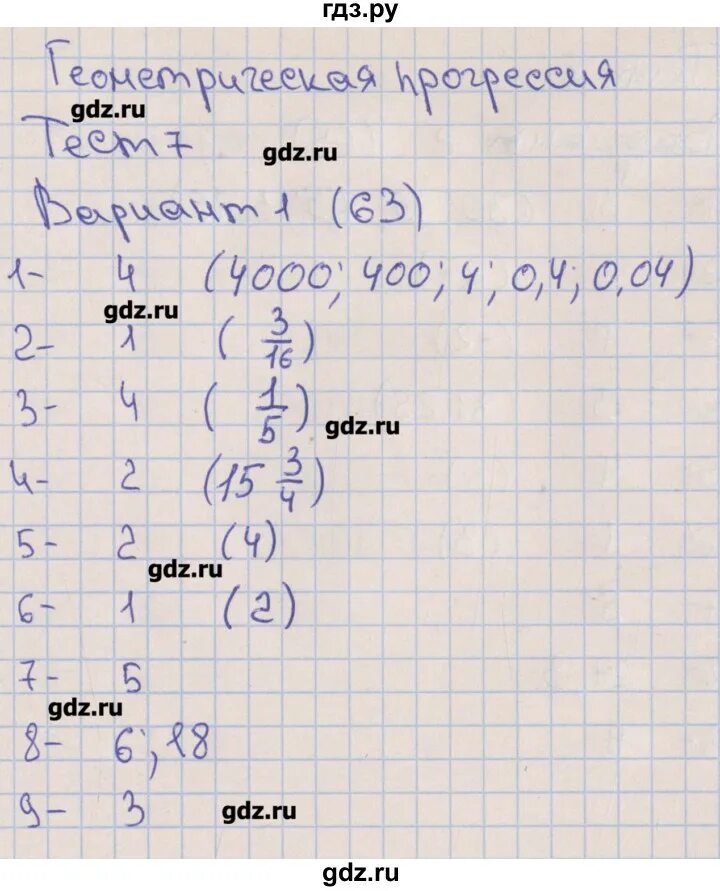 гдз.ру
Геометрическая прогрессия
gdz.ru
Тест 7
gdz.ru
Вариант 1 (63)
1- 4 (4000; 400; 4; 0,4; 0,04)
gdz.ru
2- 1 (3/16)
3- 4 (1/5)
gdz.ru
4- 2 (15 3/4)
5- 2 (4)
gdz.ru
6- 1 (2)
7- 5
gdz.ru
8- 6; 18
9- 3
gdz.ru
gdz.ru